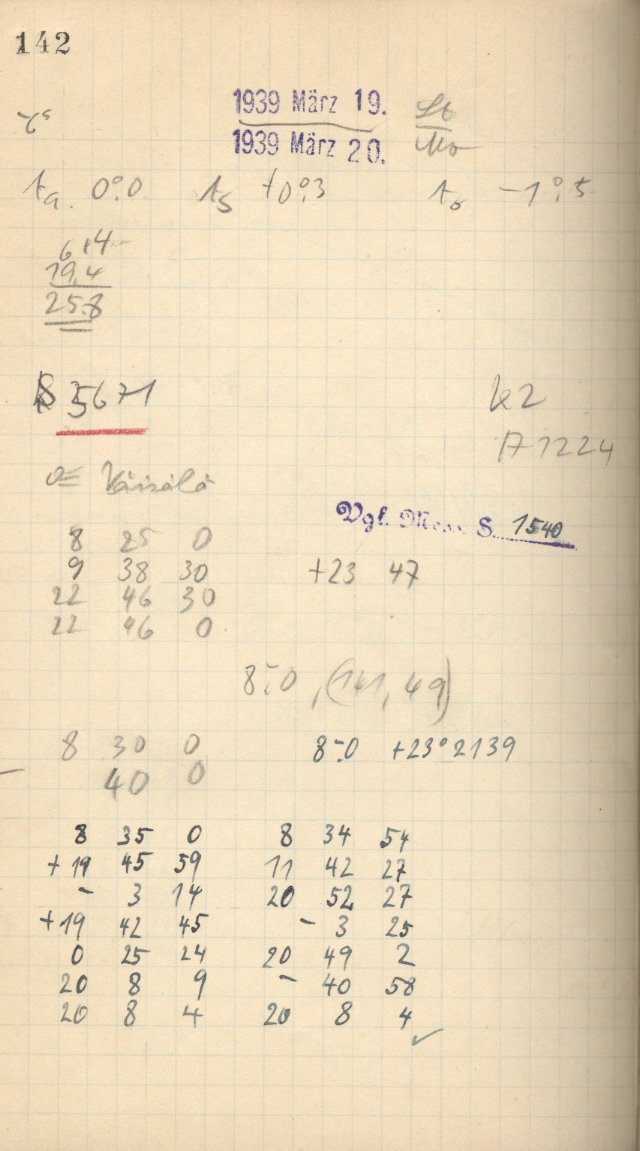 142
1939 März 19.
1939 März 20.
ta. 0°.0 ts +0°.3 to -1°.5
6,4
19,4
25.8
5671
k2
A 1224
Väisälä
Vgl. S. 1540
8 25 0
9 38 30 +23 47
22 46 30
22 46 0
8m.0, (141, 49)
8 30 0 8m.0 +23°2139
- 40 0
8 35 0 8 34 54
+19 45 59 11 42 27
- 3 14 20 52 27
+19 42 45 - 3 25
0 25 24 20 49 2
20 8 9 - 40 58
20 8 4 20 8 4 ✓